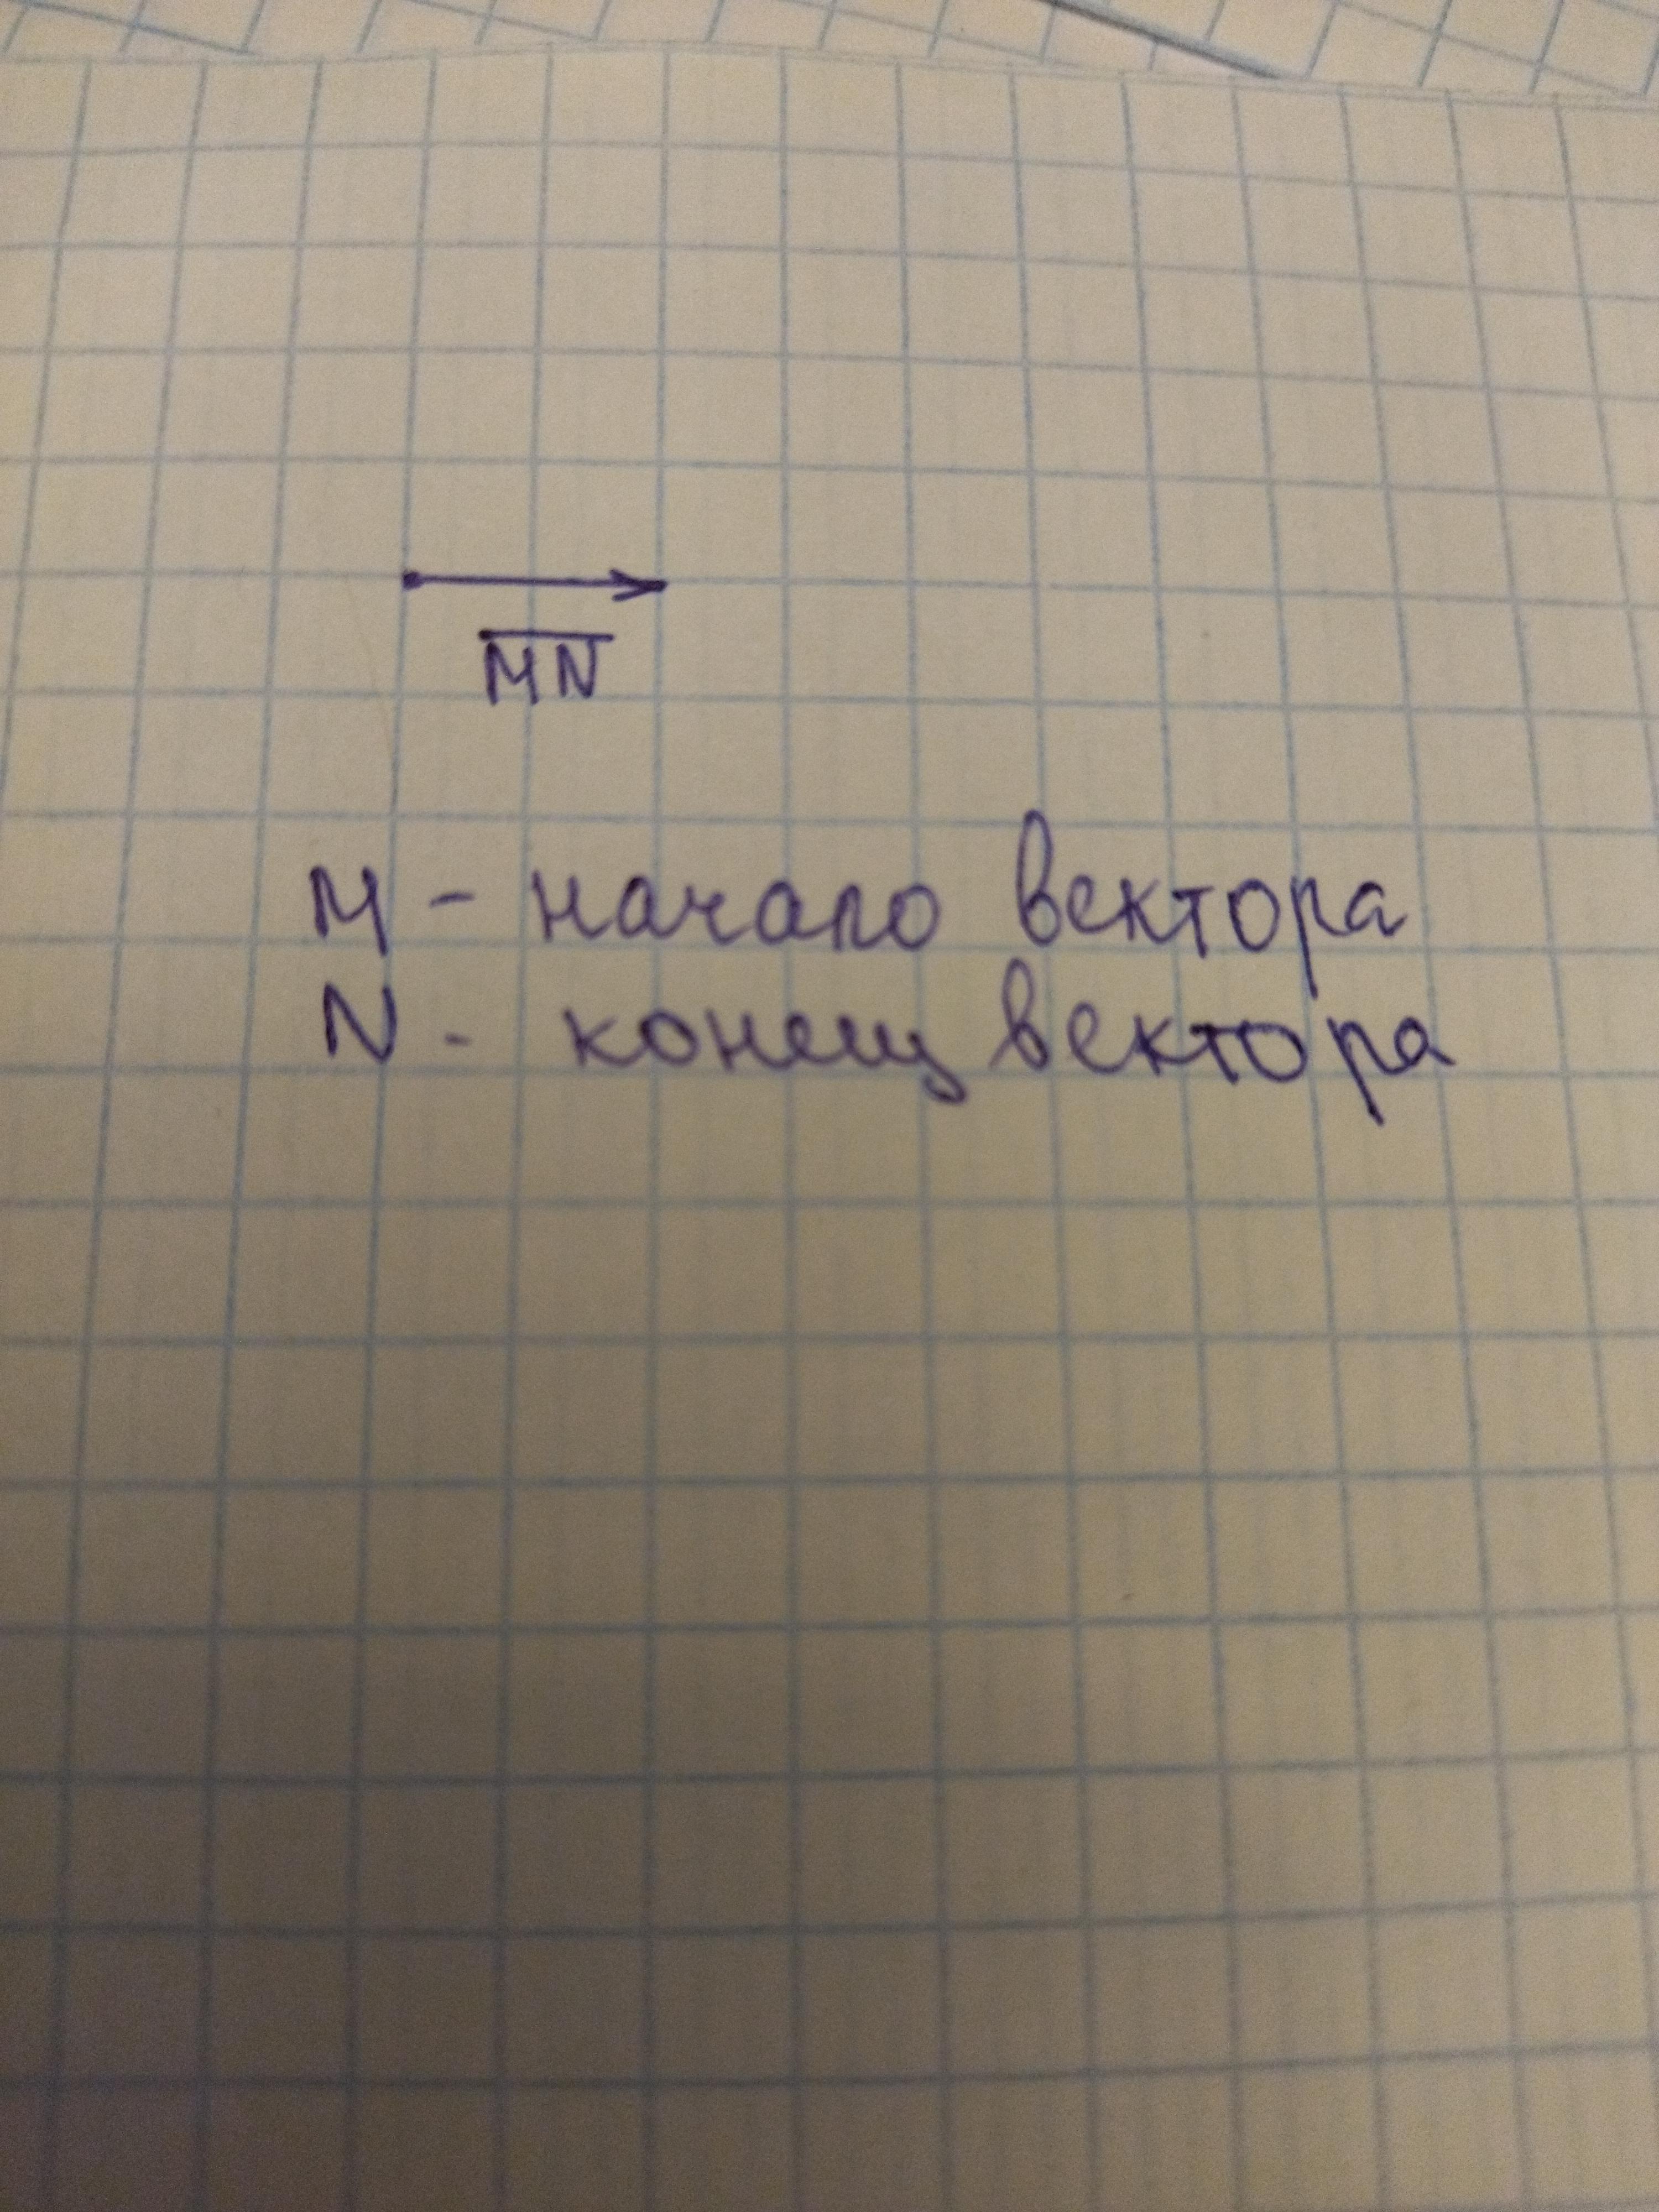 M̅N̅
M - начало вектора
N - конец вектора